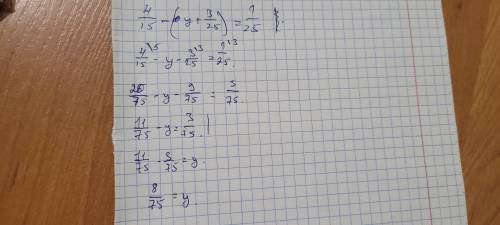 4/15 - (y + 3/25) = 1/25
4/15 ^5 - y - 3/25 ^3 = 1/25 ^3
20/75 - y - 9/75 = 3/75
11/75 - y = 3/75
11/75 - 3/75 = y
8/75 = y